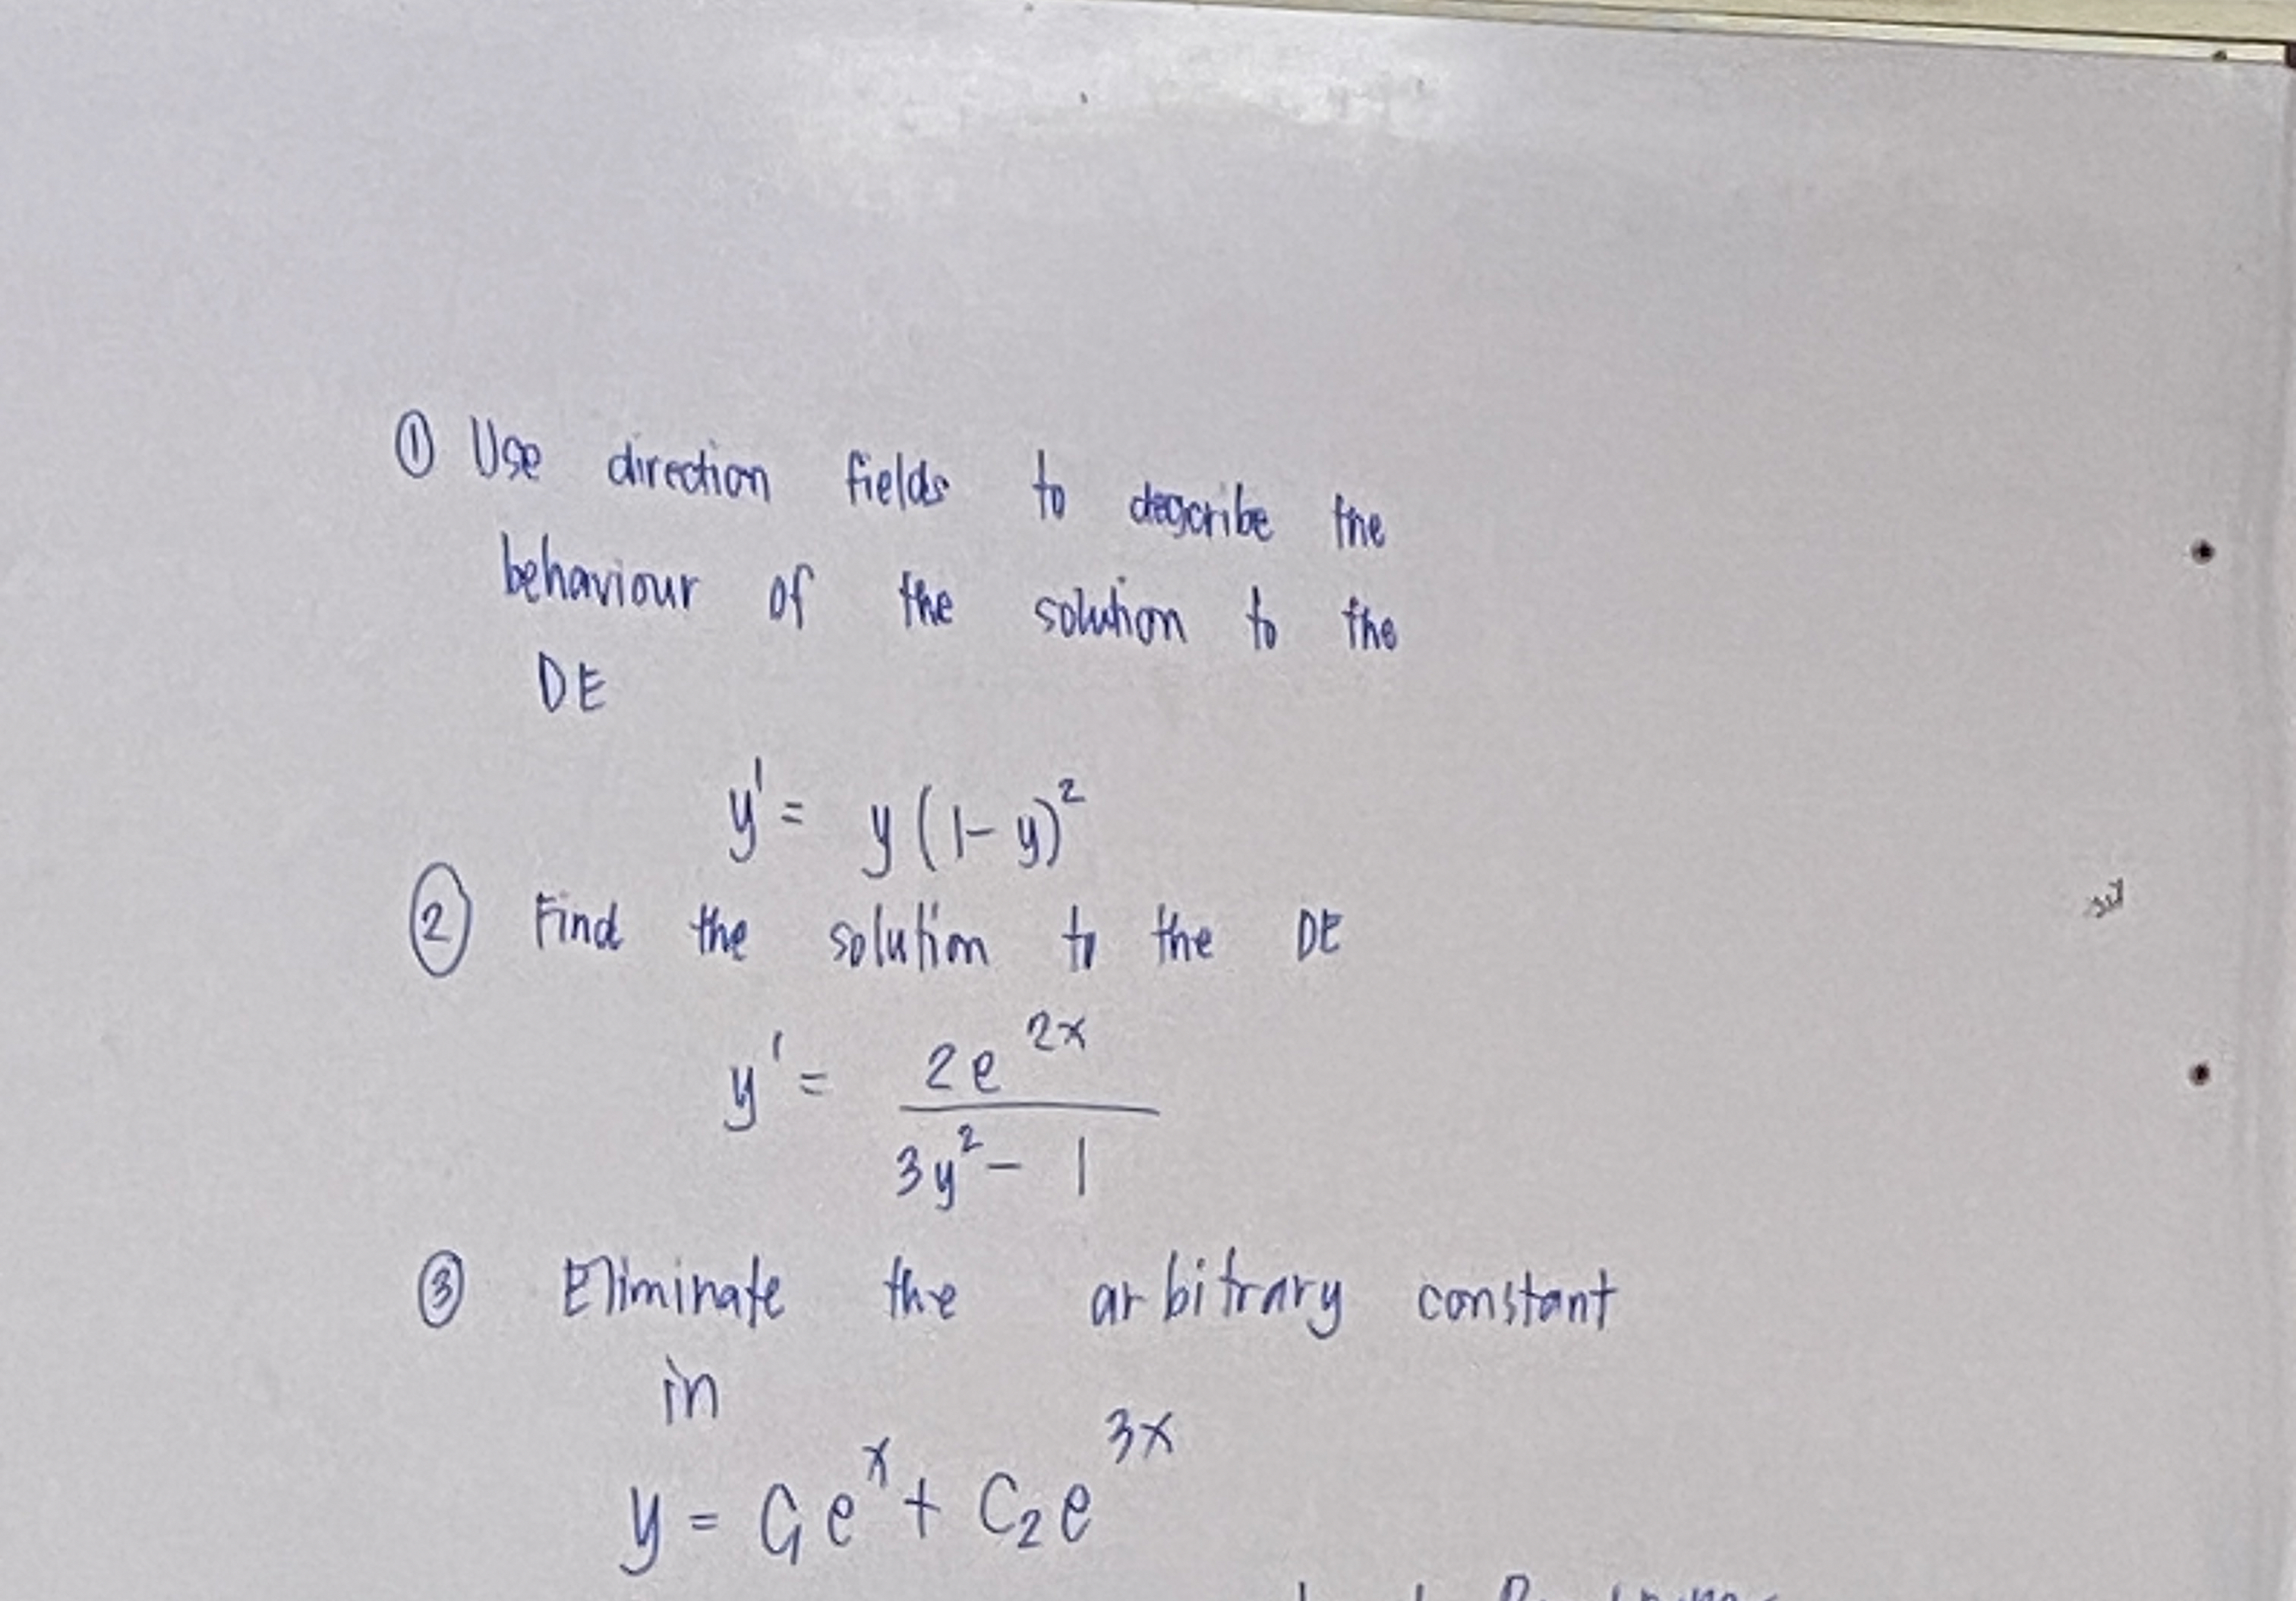 ① Use direction fields to describe the
behaviour of the solution to the
DE
y' = y(1-y)²
② Find the solution to the DE
y' = 2e^{2x} / (3y² - 1)
③ Eliminate the arbitrary constant
in
y = C₁e^x + C₂e^{3x}